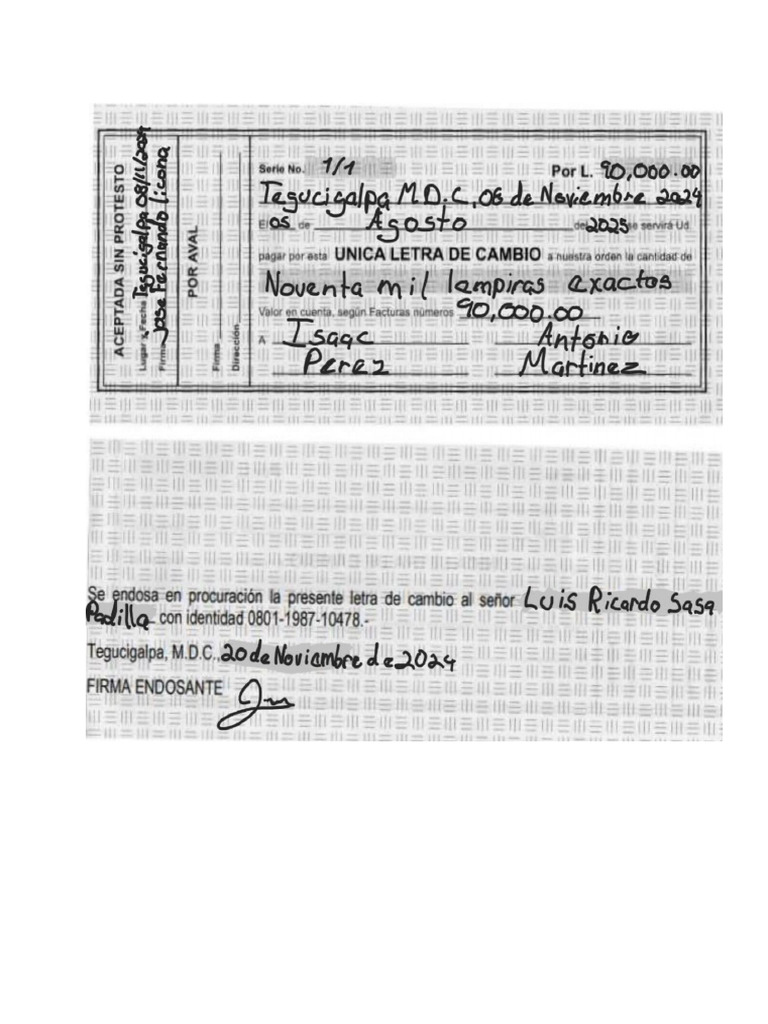 ACEPTADA SIN PROTESTO
Lugar y Fecha Tegucigalpa 08/11/2024
Firma Jose Fernando Licona
POR AVAL
Firma
Dirección
Serie No. 1/1 Por L. 90,000.00
Tegucigalpa M.D.C, 06 de Noviembre 2024
El 05 de Agosto de 2025 se servirá Ud
pagar por esta UNICA LETRA DE CAMBIO a nuestra orden la cantidad de
Noventa mil lempiras exactos
Valor en cuenta, según Facturas números 90,000.00
A Isaac Antonio
Perez Martinez
Se endosa en procuración la presente letra de cambio al señor Luis Ricardo Sasa
Padilla con identidad 0801-1987-10478.-
Tegucigalpa, M.D.C., 20 de Noviembre de 2024
FIRMA ENDOSANTE